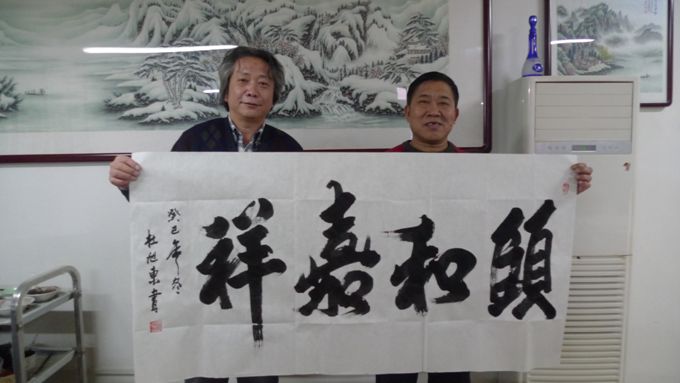 頤和嘉祥
癸巳年冬
杜旭東書